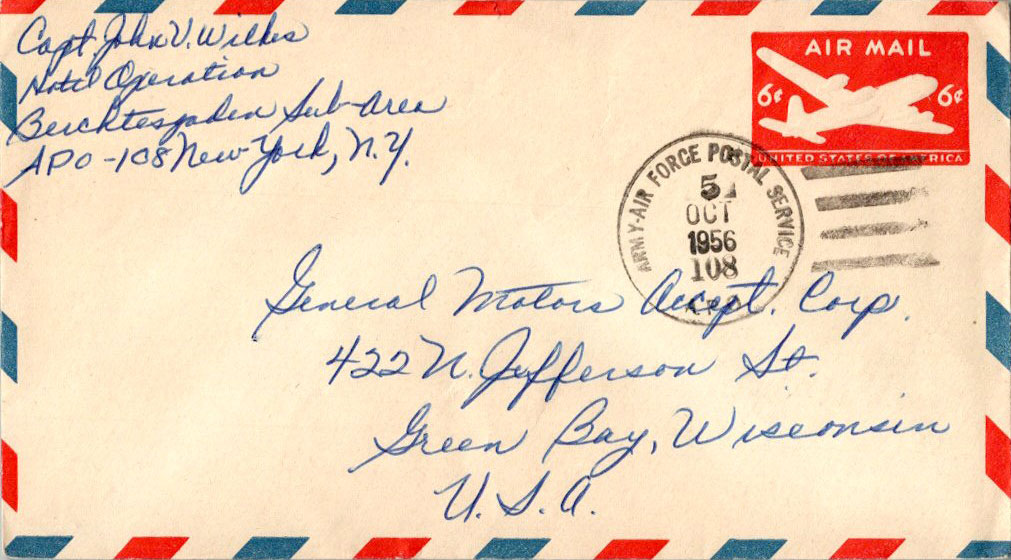 Capt. John V. Wilkes
Hotel Operation
Berchtesgaden Sub-Area
APO-108 New York, N.Y.
AIR MAIL
6¢ 6¢
UNITED STATES OF AMERICA
ARMY-AIR FORCE POSTAL SERVICE
5
OCT
1956
108
A.P.O.
General Motors Accept. Corp.
422 N. Jefferson St.
Green Bay, Wisconsin
U.S.A.